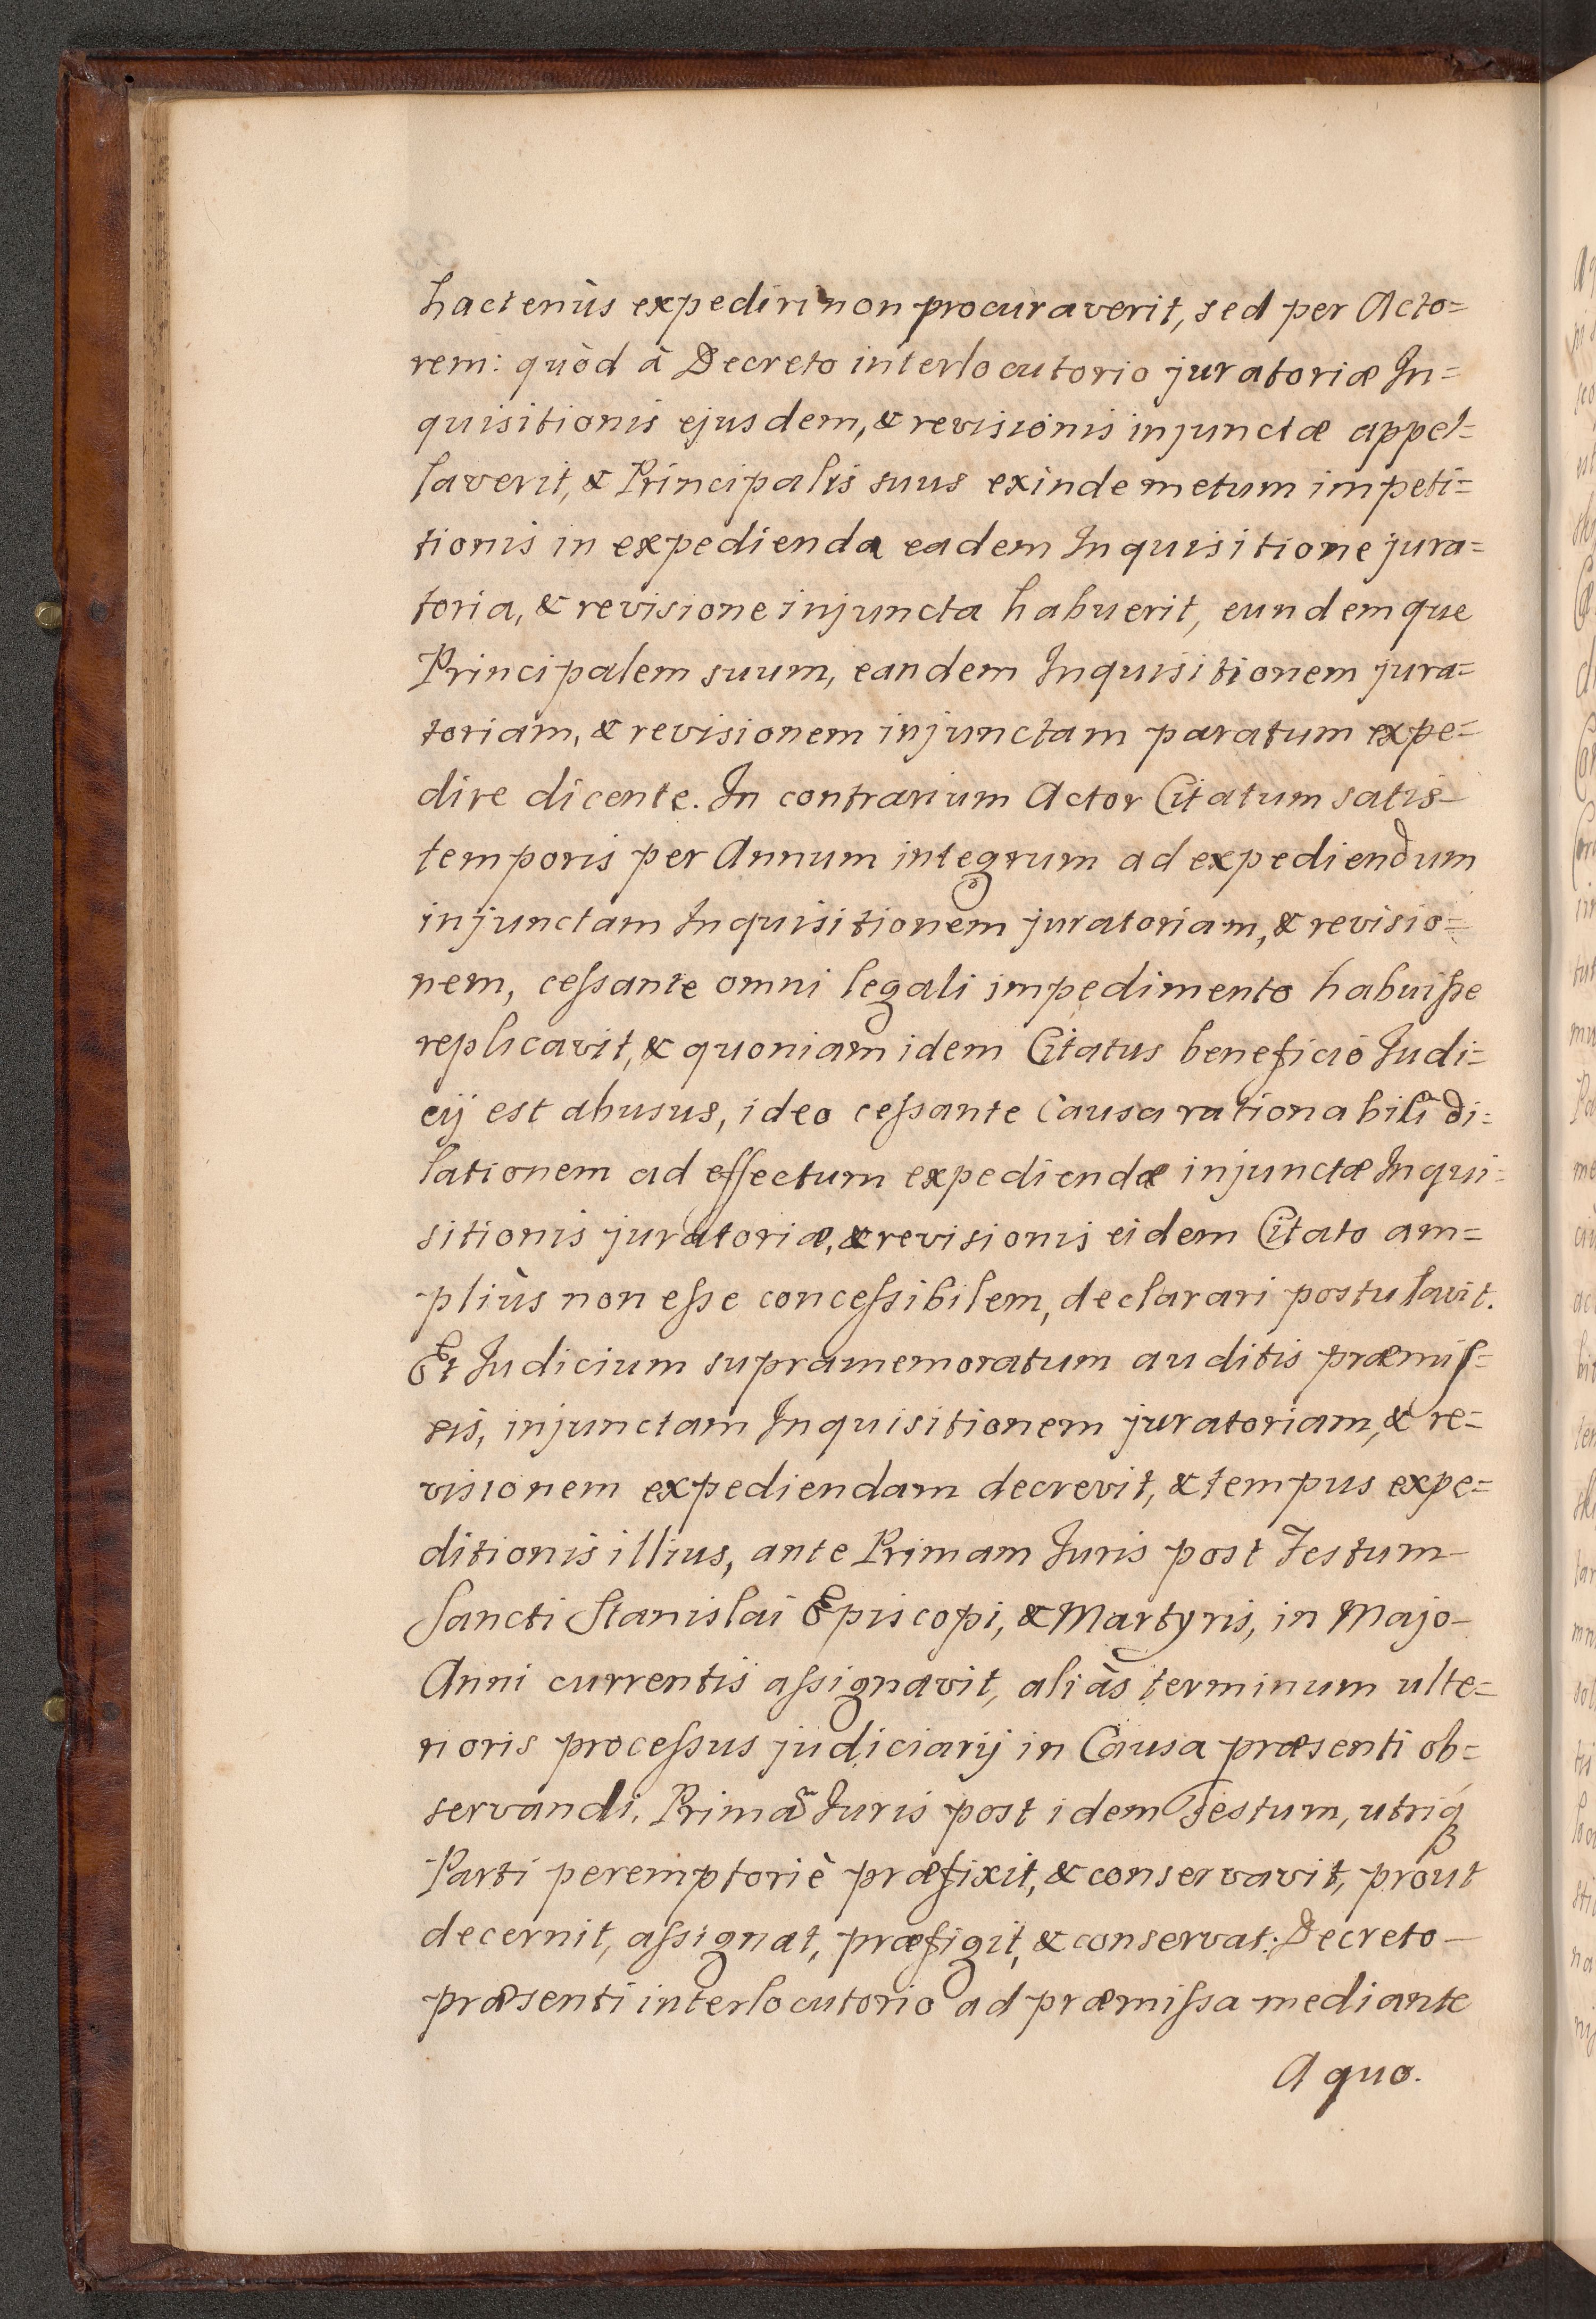 hactenùs expediri non procuraverit, sed per Acto=
rem: quòd à Decreto interlocutorio juratoriæ In=
quisitionis ejusdem, & revisionis injunctæ appel=
laverit, & Principalis suus exinde metum impeti=
tionis in expedienda eadem Inquisitione jura=
toria, & revisione injuncta habuerit, eundemque
Principalem suum, eandem Inquisitionem jura=
toriam, & revisionem injunctam paratum expe=
dire dicente. In contrarium Actor Citatum satis
temporis per Annum integrum ad expediendum
injunctam Inquisitionem juratoriam, & revisio=
nem, ceſsante omni legali impedimento habuiſse
replicavit, & quoniam idem Citatus beneficio Judi=
cij est abusus, ideo ceſsante Causa rationabili di=
lationem ad effectum expediendæ injunctæ Inqui=
sitionis juratoriæ, & revisionis eidem Citato am=
pliùs non eſse conceſsibilem, declarari postulavit.
Et Judicium supramemoratum auditis præmiſ=
sis, injunctam Inquisitionem juratoriam, & re=
visionem expediendam decrevit, & tempus expe=
ditionis illius, ante Primam Juris post Festum
Sancti Stanislai Episcopi, & Martyris, in Majo
Anni currentis aſsignavit, aliàs terminum ulte=
rioris proceſsus judiciarij in Causa præsenti ob=
servandi, Primã Juris post idem Festum, utriq́ꝫ
Parti peremptoriè præfixit, & conservavit, prout
decernit, aſsignat, præfigit, & conservat. Decreto
præsenti interlocutorio ad præmiſsa mediante
A quo.